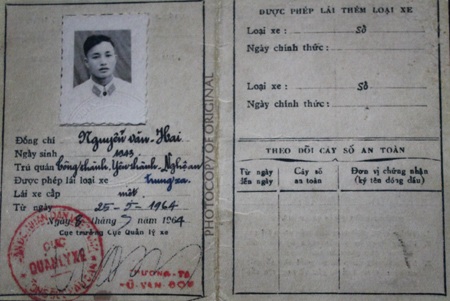 Đồng chí Nguyễn văn Hai
Ngày sinh 1933
Trú quán Công thành, Yên thành, Nghệ an
Được phép lái loại xe trung xa
Lái xe cấp một
Từ ngày 25-5-1964
Ngày 8 tháng 5 năm 1964
Cục trưởng Cục Quản lý xe
CỤC
QUẢN LÝ XE
PHOTOCOPY OF ORIGINAL
ĐƯỢC PHÉP LÁI THÊM LOẠI XE
Loại xe : số
Ngày chính thức :
Loại xe : số
Ngày chính thức :
THEO DÕI CÂY SỐ AN TOÀN
Từ ngày đến ngày
Cây số an toàn
Đơn vị chứng nhận (ký tên đóng dấu)